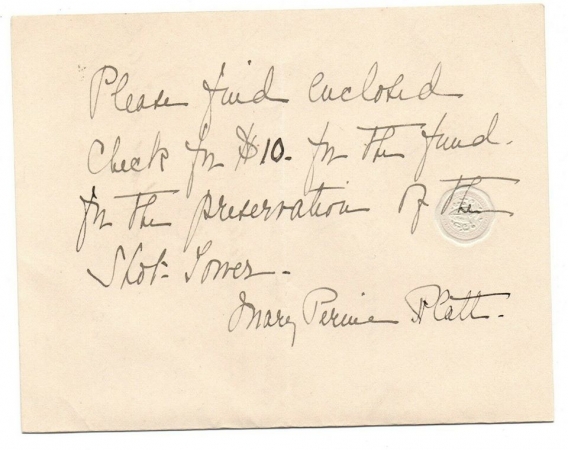 Please find enclosed
Check for $10. for the fund.
for the preservation of the
Shot Tower.
Mary Perine Platt.